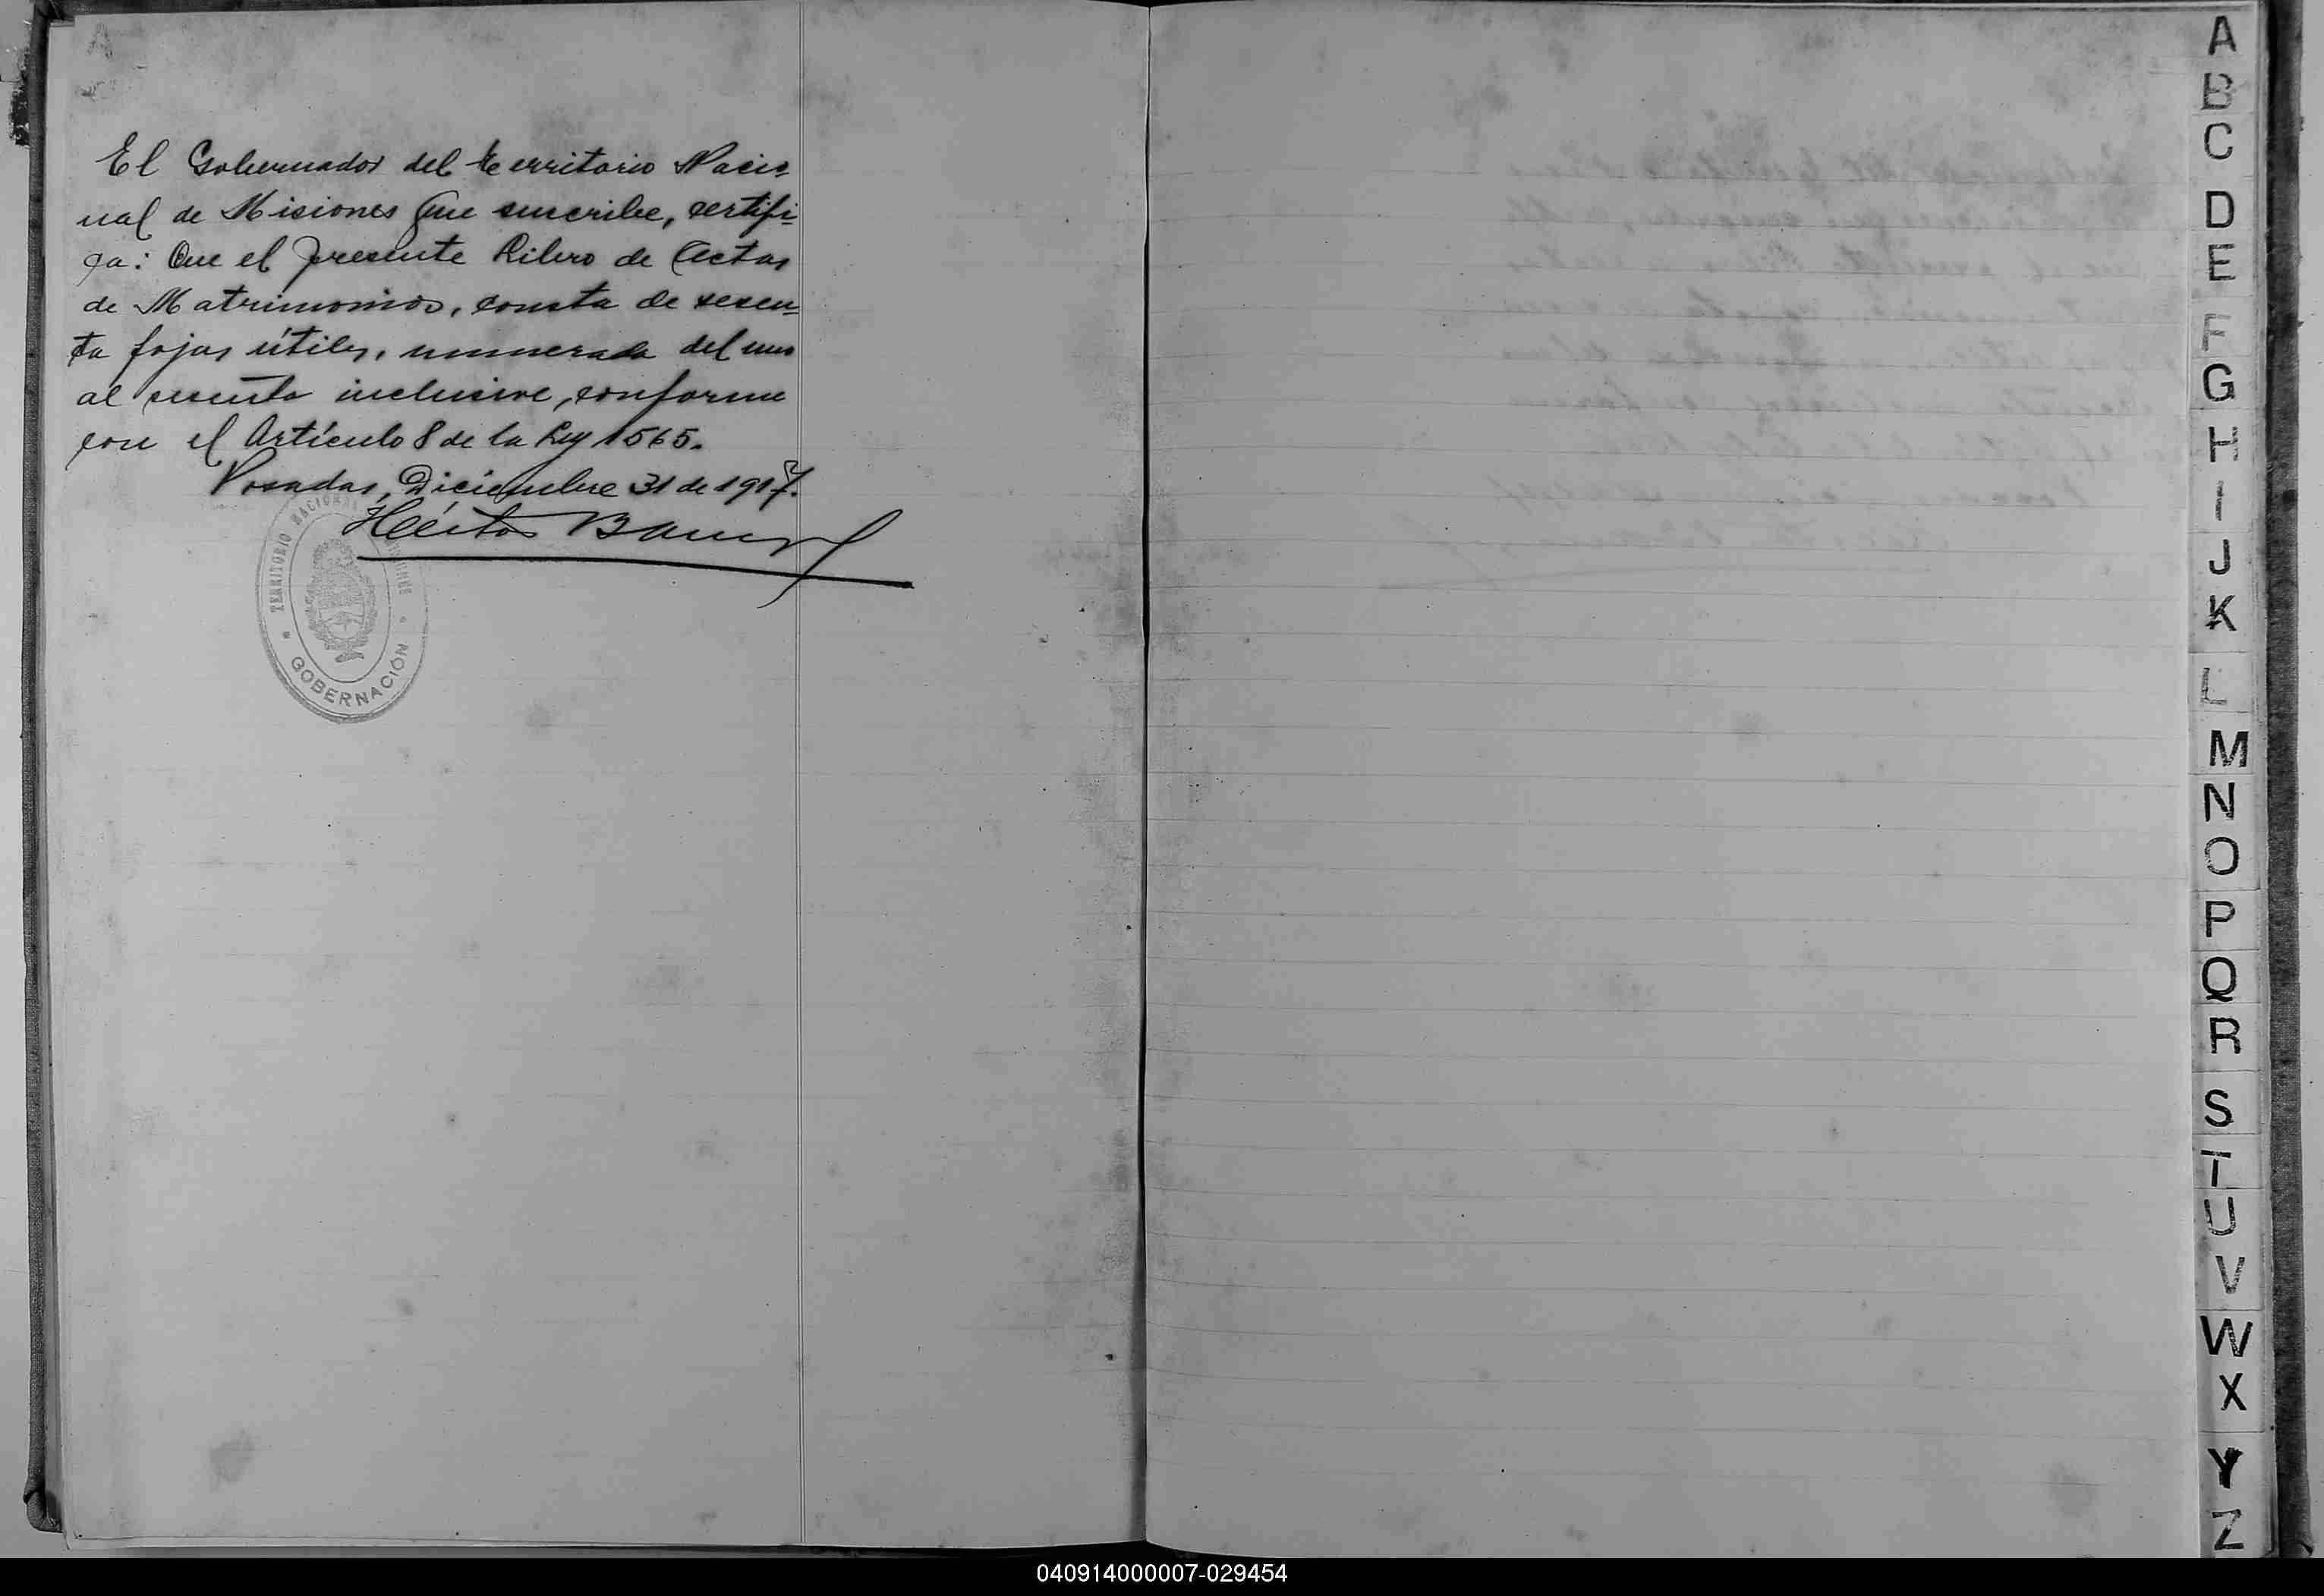 A
El Gobernador del Territorio Nacio
nal de Misiones que suscribe, certifi=
ca: Que el presente Libro de Actas
de Matrimonios, consta de sesen=
ta fojas útiles, numerada del uno
al sesenta inclusive, conforme
con el Artículo 8 de la Ley 1565.
Posadas, Diciembre 31 de 1917.
Héctor
TERRITORIO NACIONAL MISIONES
GOBERNACIÓN
A
B
C
D
E
F
G
H
I
J
K
L
M
N
O
P
Q
R
S
T
U
V
W
X
Y
Z
040914000007-029454